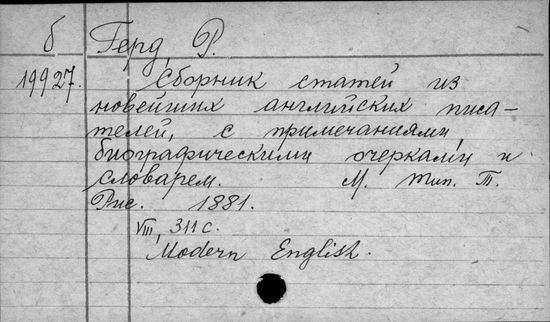 б Герд, Р.
19927. Сборник статей из
новейших английских писа-
телей, с примечаниями,
биографическими очерками и
словарем. М. тип. Т.
Рис. 1881.
VIII, 311 с.
Modern English.